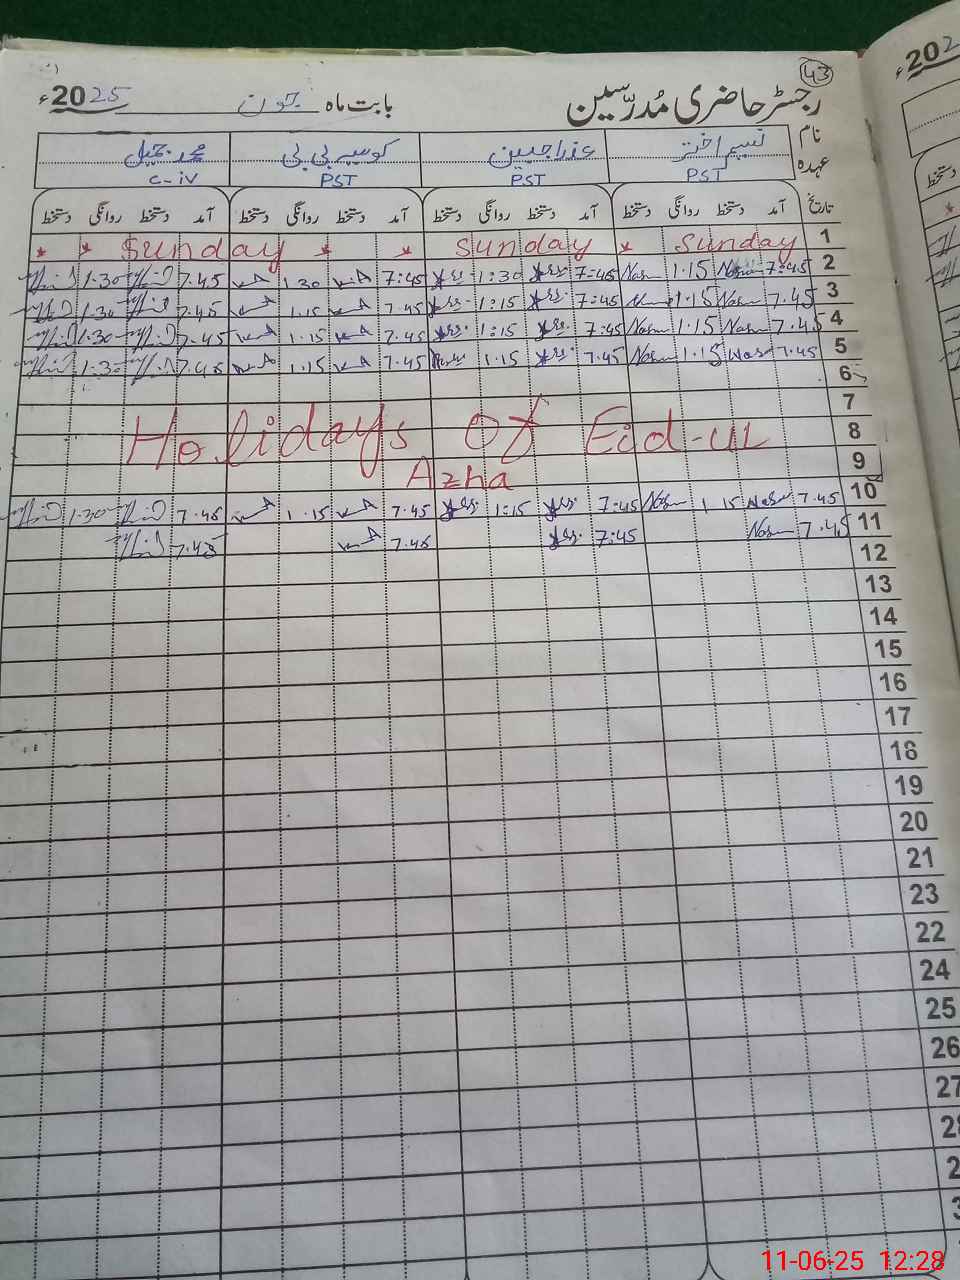 43
رجسٹر حاضری مُدرّسین بابت ماہ جون 2025ء
نام نسیم اختر عذرا جبین کوسیر بی بی محمد جمیل
عہدہ PST PST PST C-iv
تاریخ آمد دستخط روانگی دستخط آمد دستخط روانگی دستخط آمد دستخط روانگی دستخط آمد دستخط روانگی دستخط
1 Sunday * Sunday * * Sunday * *
2 7:45 Nas 1.15 Nas 7:45 1:30 7:45 1.30 7.45 1.30
3 7.45 Nas 1.15 Nas 7:45 1:15 7.45 1.15 7.45 1.30
4 7.45 Nas 1.15 Nas 7:45 1:15 7.45 1.15 7.45 1.30
5 7.45 Nas 1.15 Nas 7.45 1.15 7.45 1.15 7.45 1.30
6
7
8 Holidays of Eid-ul
9 Azha
10 7.45 Nas 1.15 Nas 7:45 1:15 7.45 1.15 7.45 1.30
11 7.45 Nas 7:45 7.45 7.45
12
13
14
15
16
17
18
19
20
21
23
22
24
25
26
27
2
2
3
202
دستخط
11-06-25 12:28